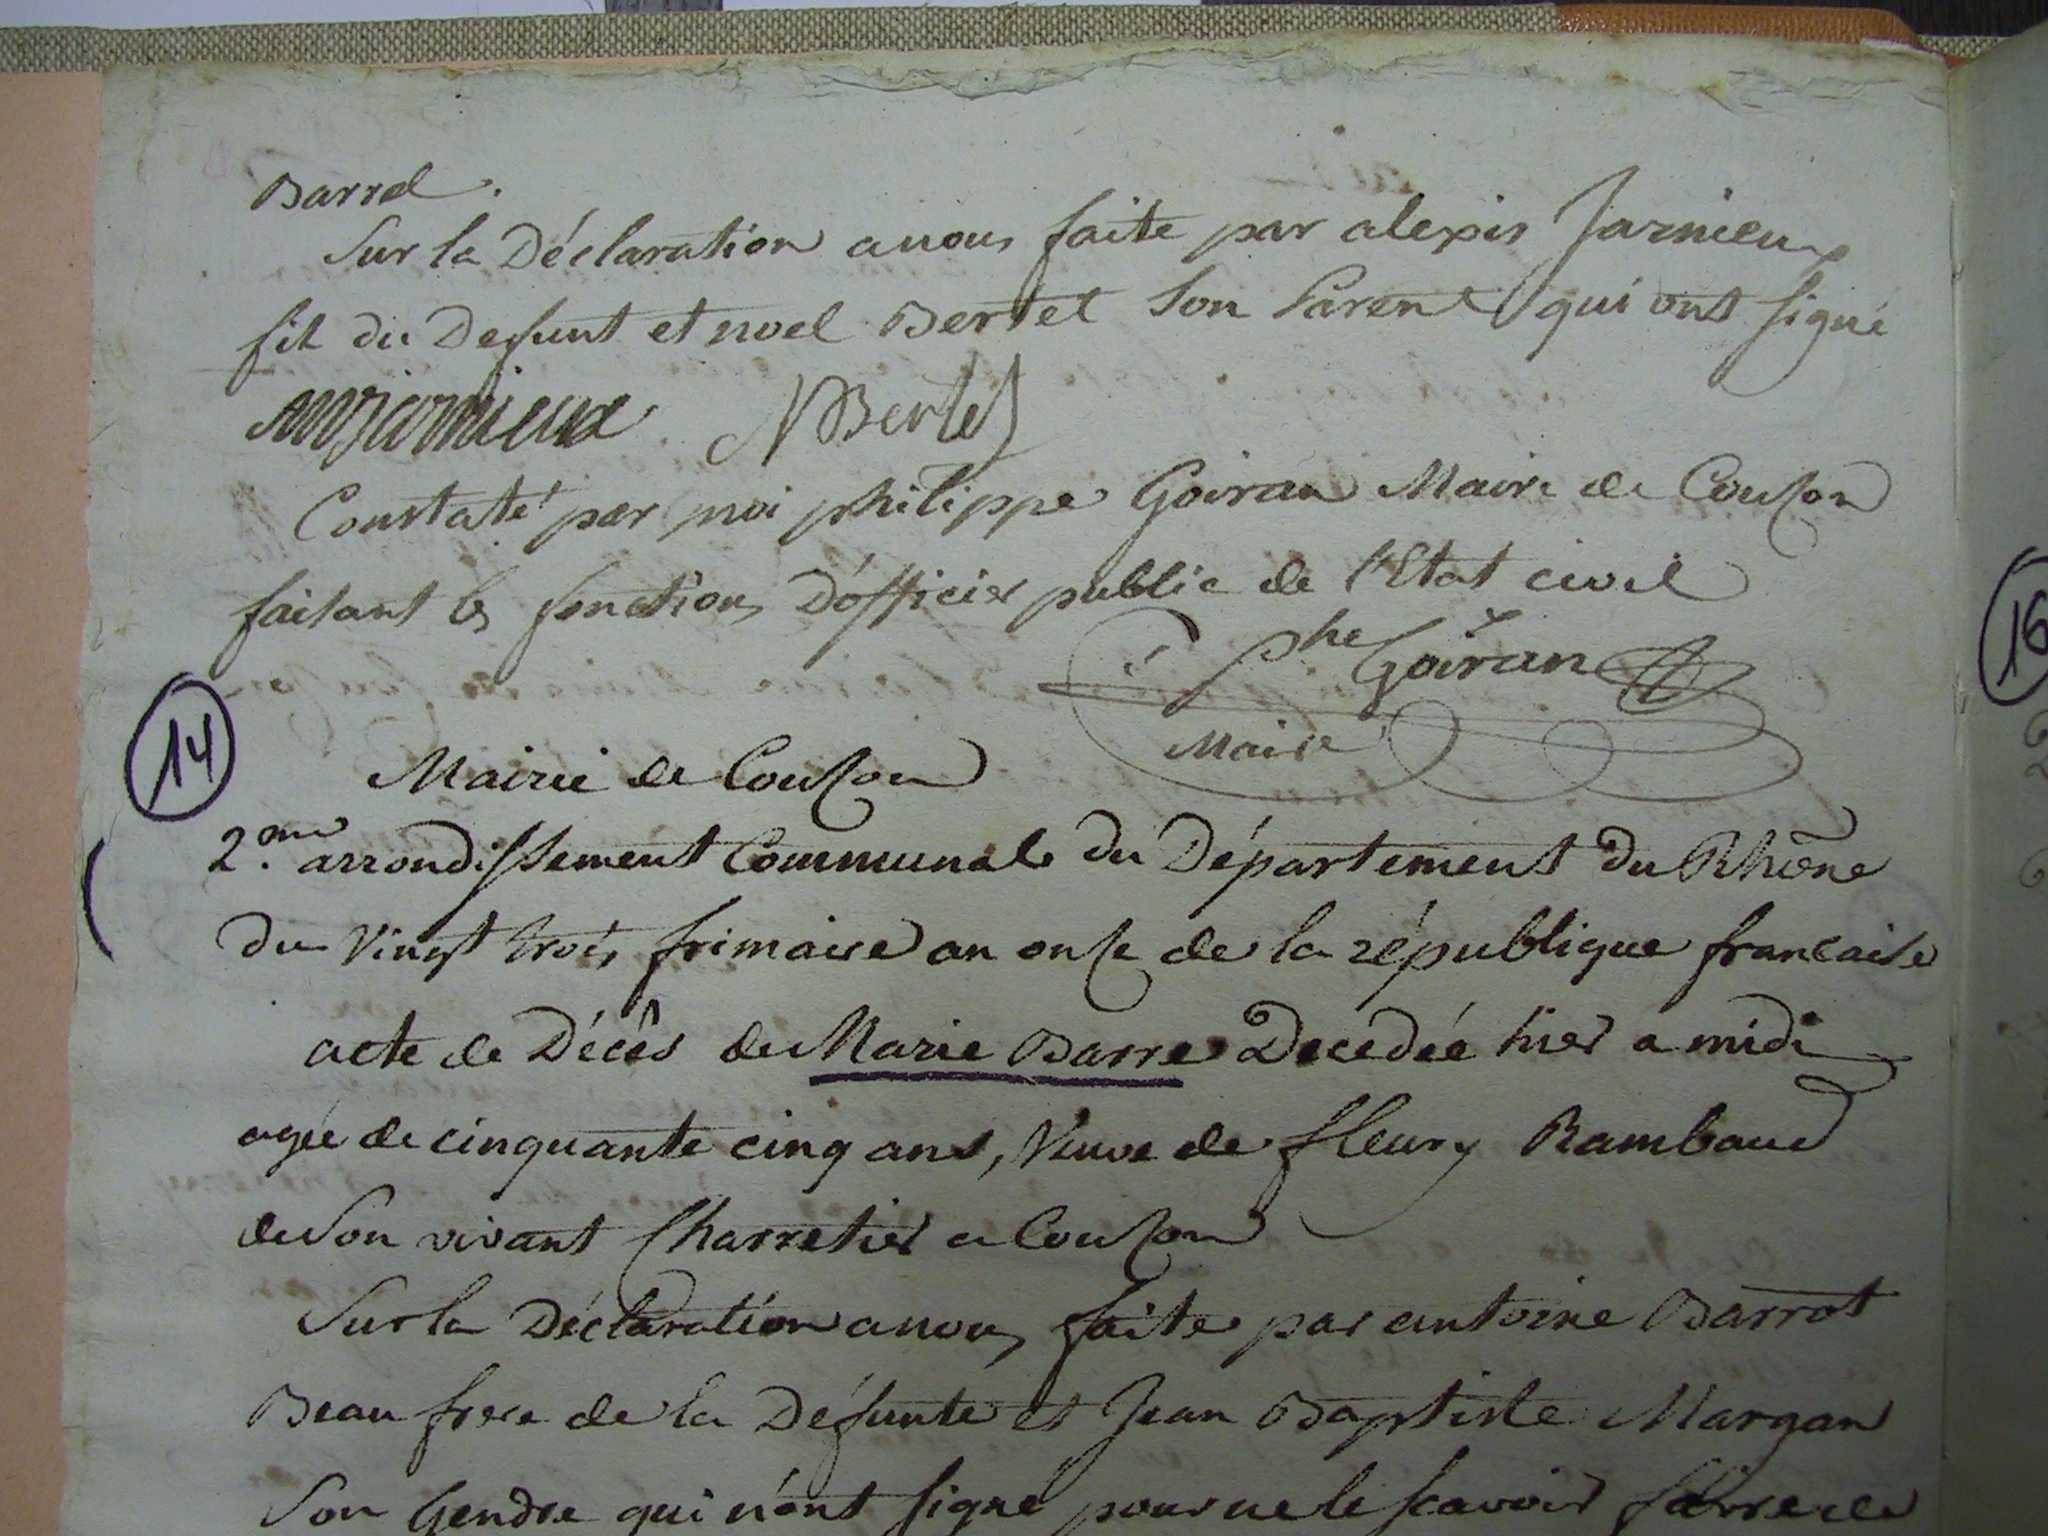 Barrel.
Sur la Déclaration a nous faite par alexis Jarnieux
fils du Defunt et noel Bertet Son Parent qui ont signé
jarnieux NBertet
Constaté par moi philippe Goiran Maire de Couzon
faisant les fonctions D'officier public de l'Etat civil
Phe Goiran
Maire
14
16
Mairie de Couzon
2.me arrondissement Communal du Département du Rhône
du vingt trois frimaire an onze de la république francaise
acte de Décês de Marie Barre Decedée hier a midi
agée de cinquante cinq ans, Veuve de fleury Rambaud
de Son vivant Charretier a Couzon
Sur la Déclaration a nous faite par antoine Barrot
Beau frere de la Défunte et Jean Baptiste Margan
Son Gendre qui n'ont signé pour ne le scavoir faire de